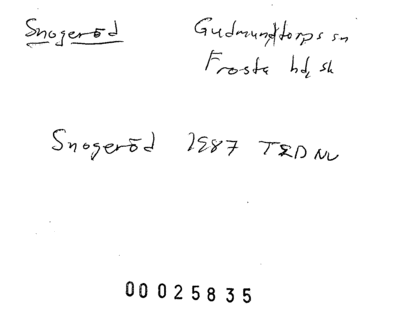 Snogeröd
Gudmundtorps sn
Frosta hd, sk
Snogeröd 1987 TEDNV
00025835